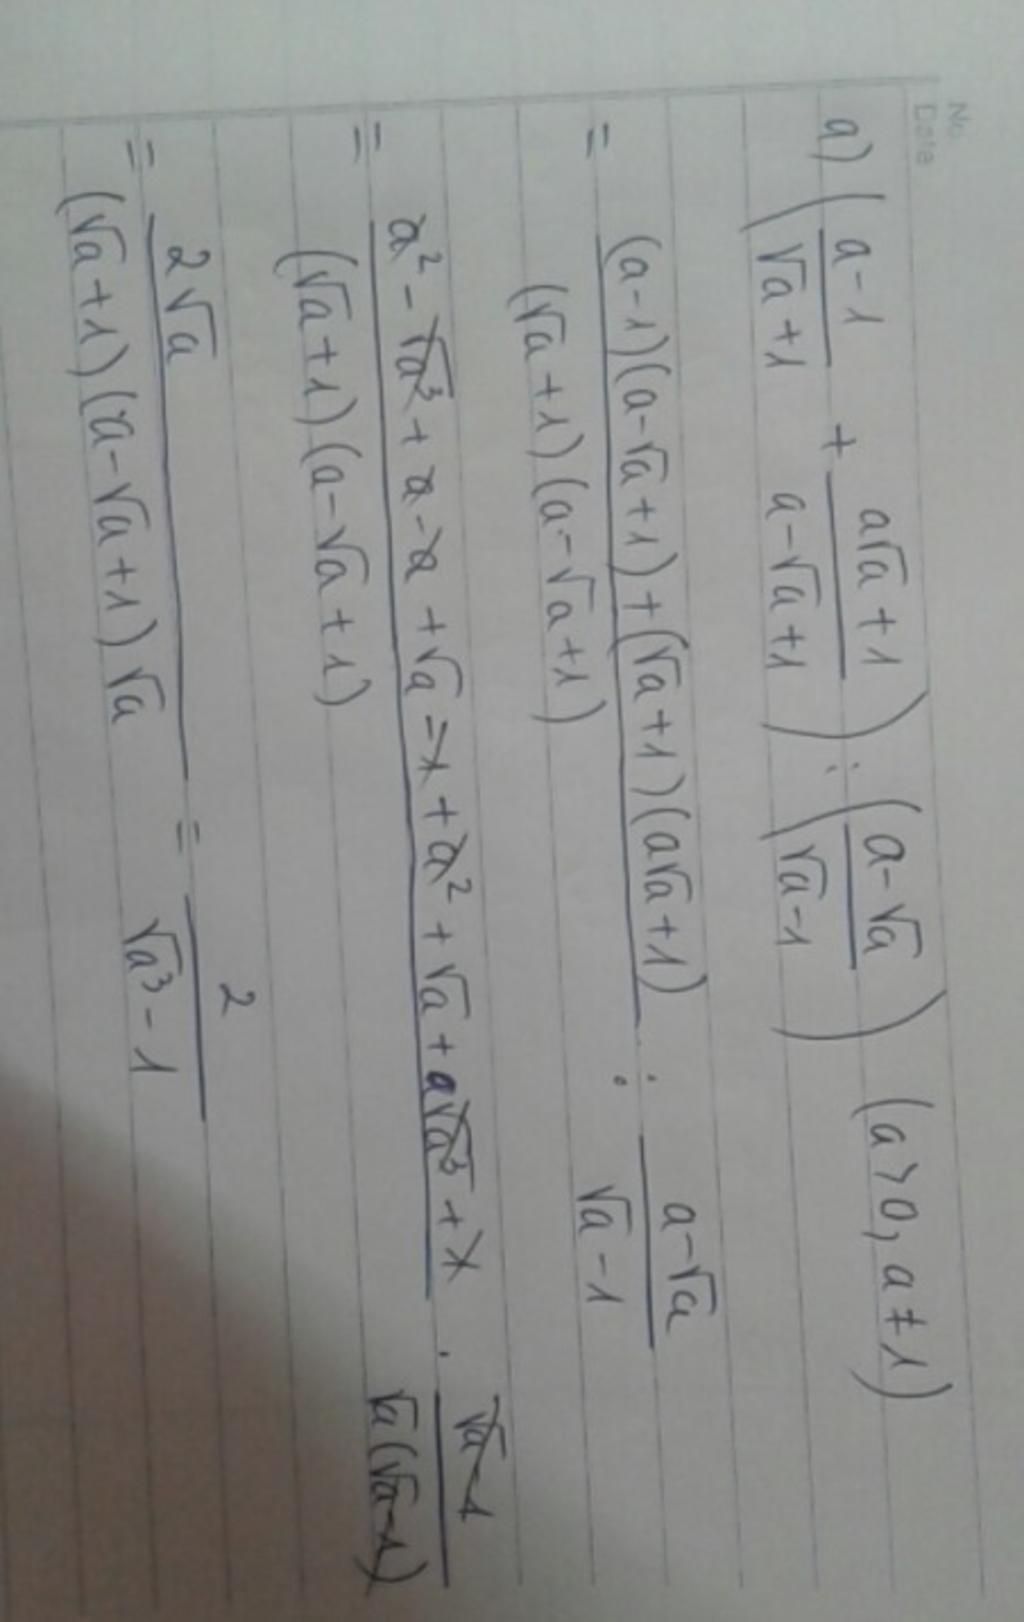 No.
Date
a) ( (a-1)/(√a+1) + (a√a+1)/(a-√a+1) ) : ( (a-√a)/(√a-1) ) (a>0, a≠1)
= ((a-1)(a-√a+1)+(√a+1)(a√a+1))/((√a+1)(a-√a+1)) : (a-√a)/(√a-1)
= (a²-√a³+a-a+√a-1+a²+√a+a√a³+1)/((√a+1)(a-√a+1)) . (√a-1)/(√a(√a-1))
= (2√a)/((√a+1)(a-√a+1)√a) = 2/(√a³-1)